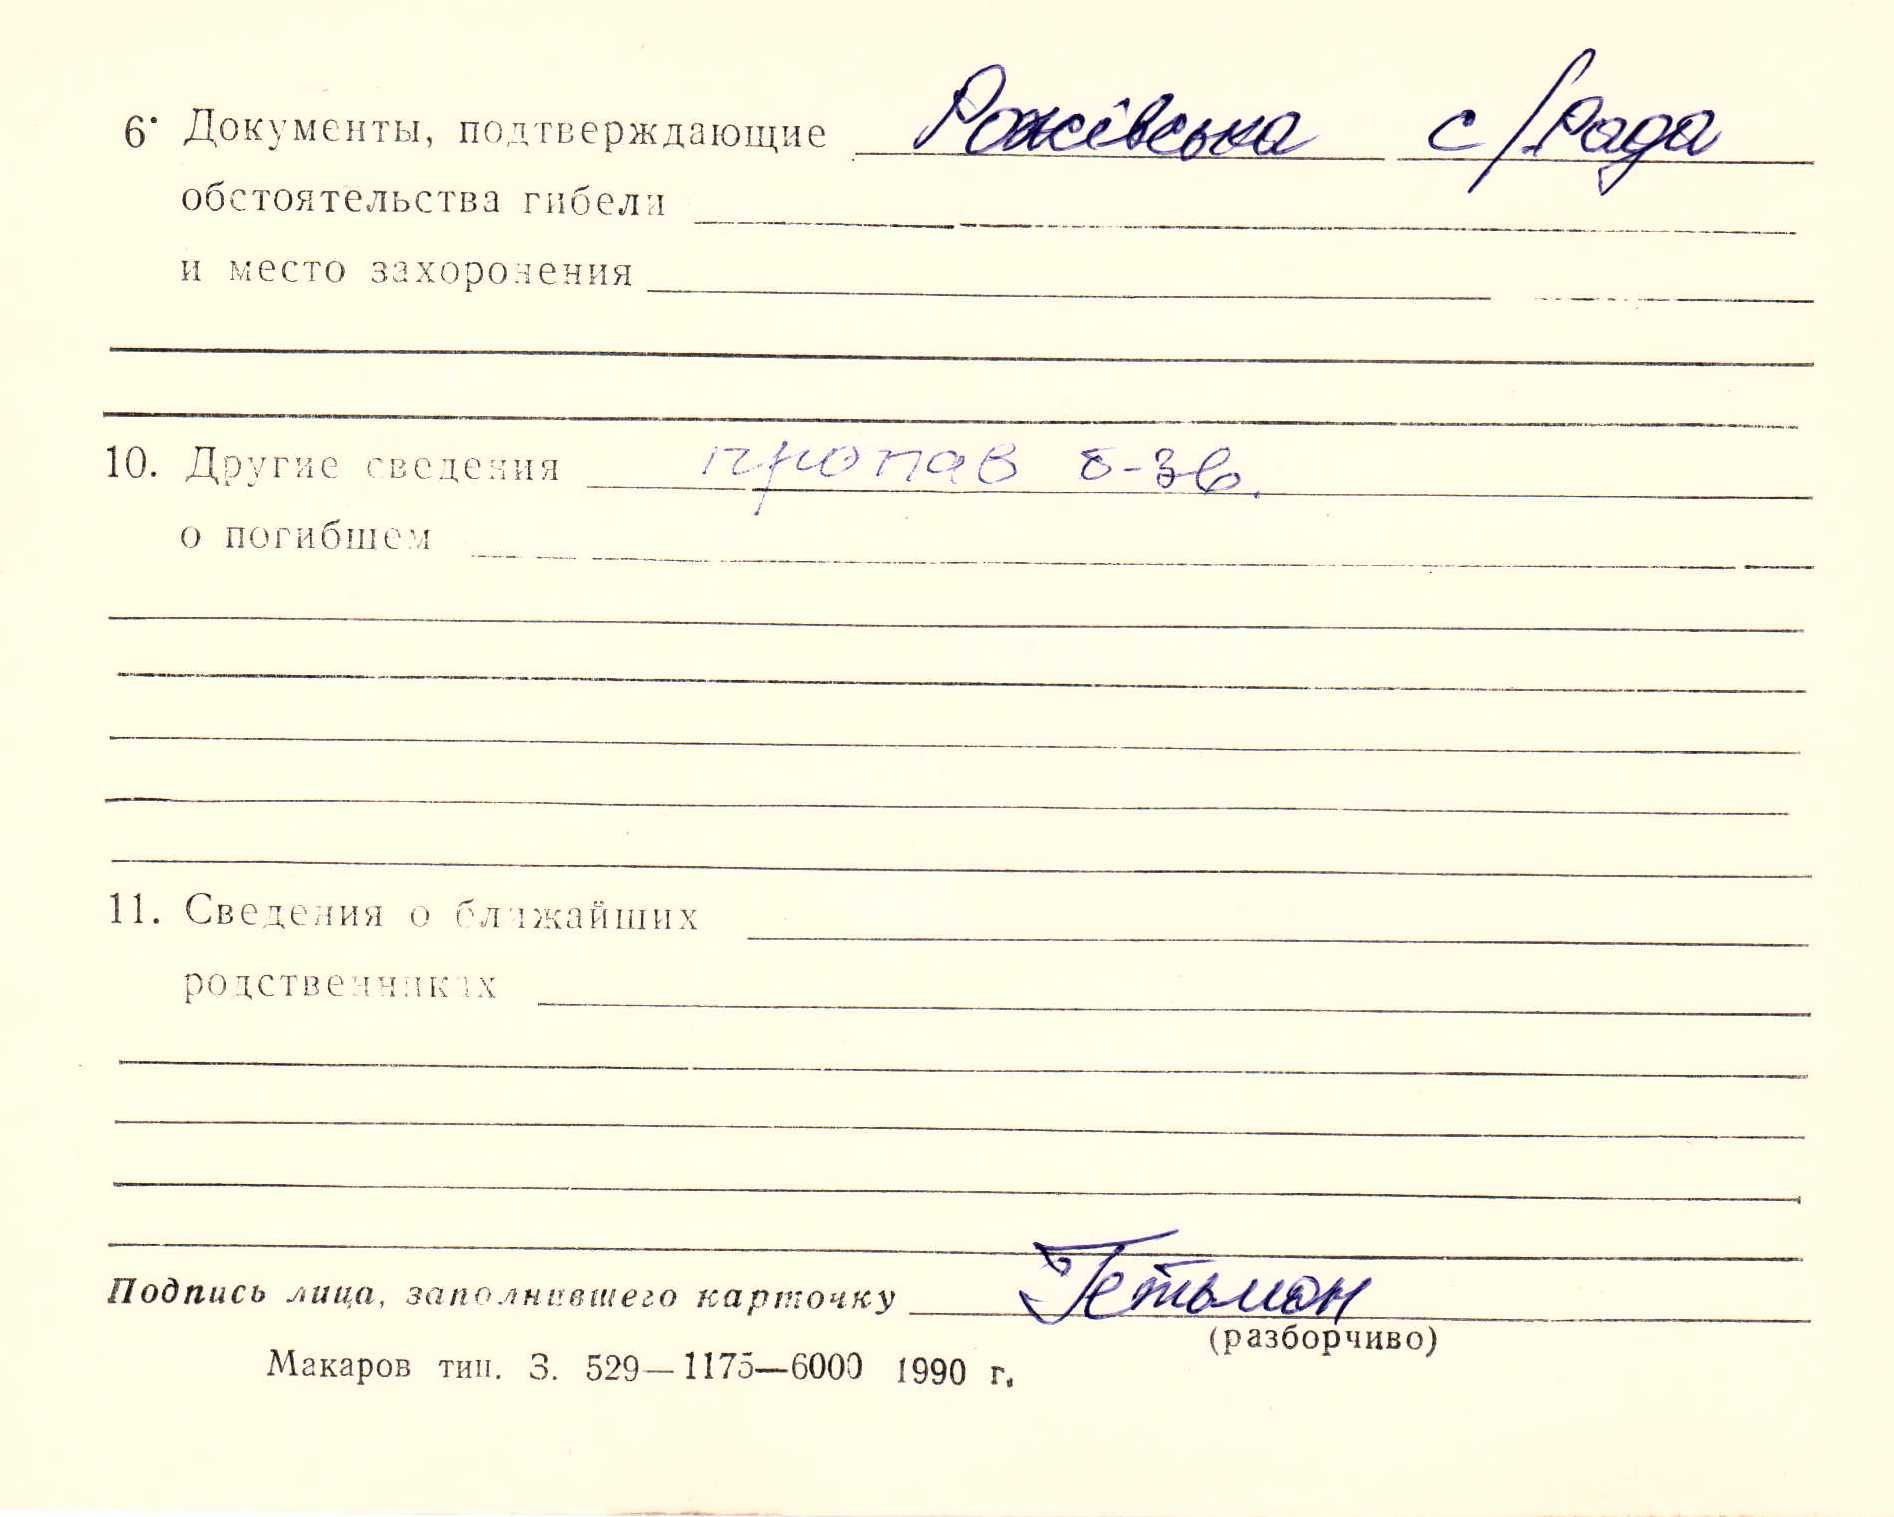 6. Документы, подтверждающие Рожівська с/Рада
обстоятельства гибели
и место захоронения
10. Другие сведения пропав б-зв.
о погибшем
11. Сведения о ближайших
родственниках
Подпись лица, заполнившего карточку Гетьман
(разборчиво)
Макаров тип. З. 529—1175—6000 1990 г.